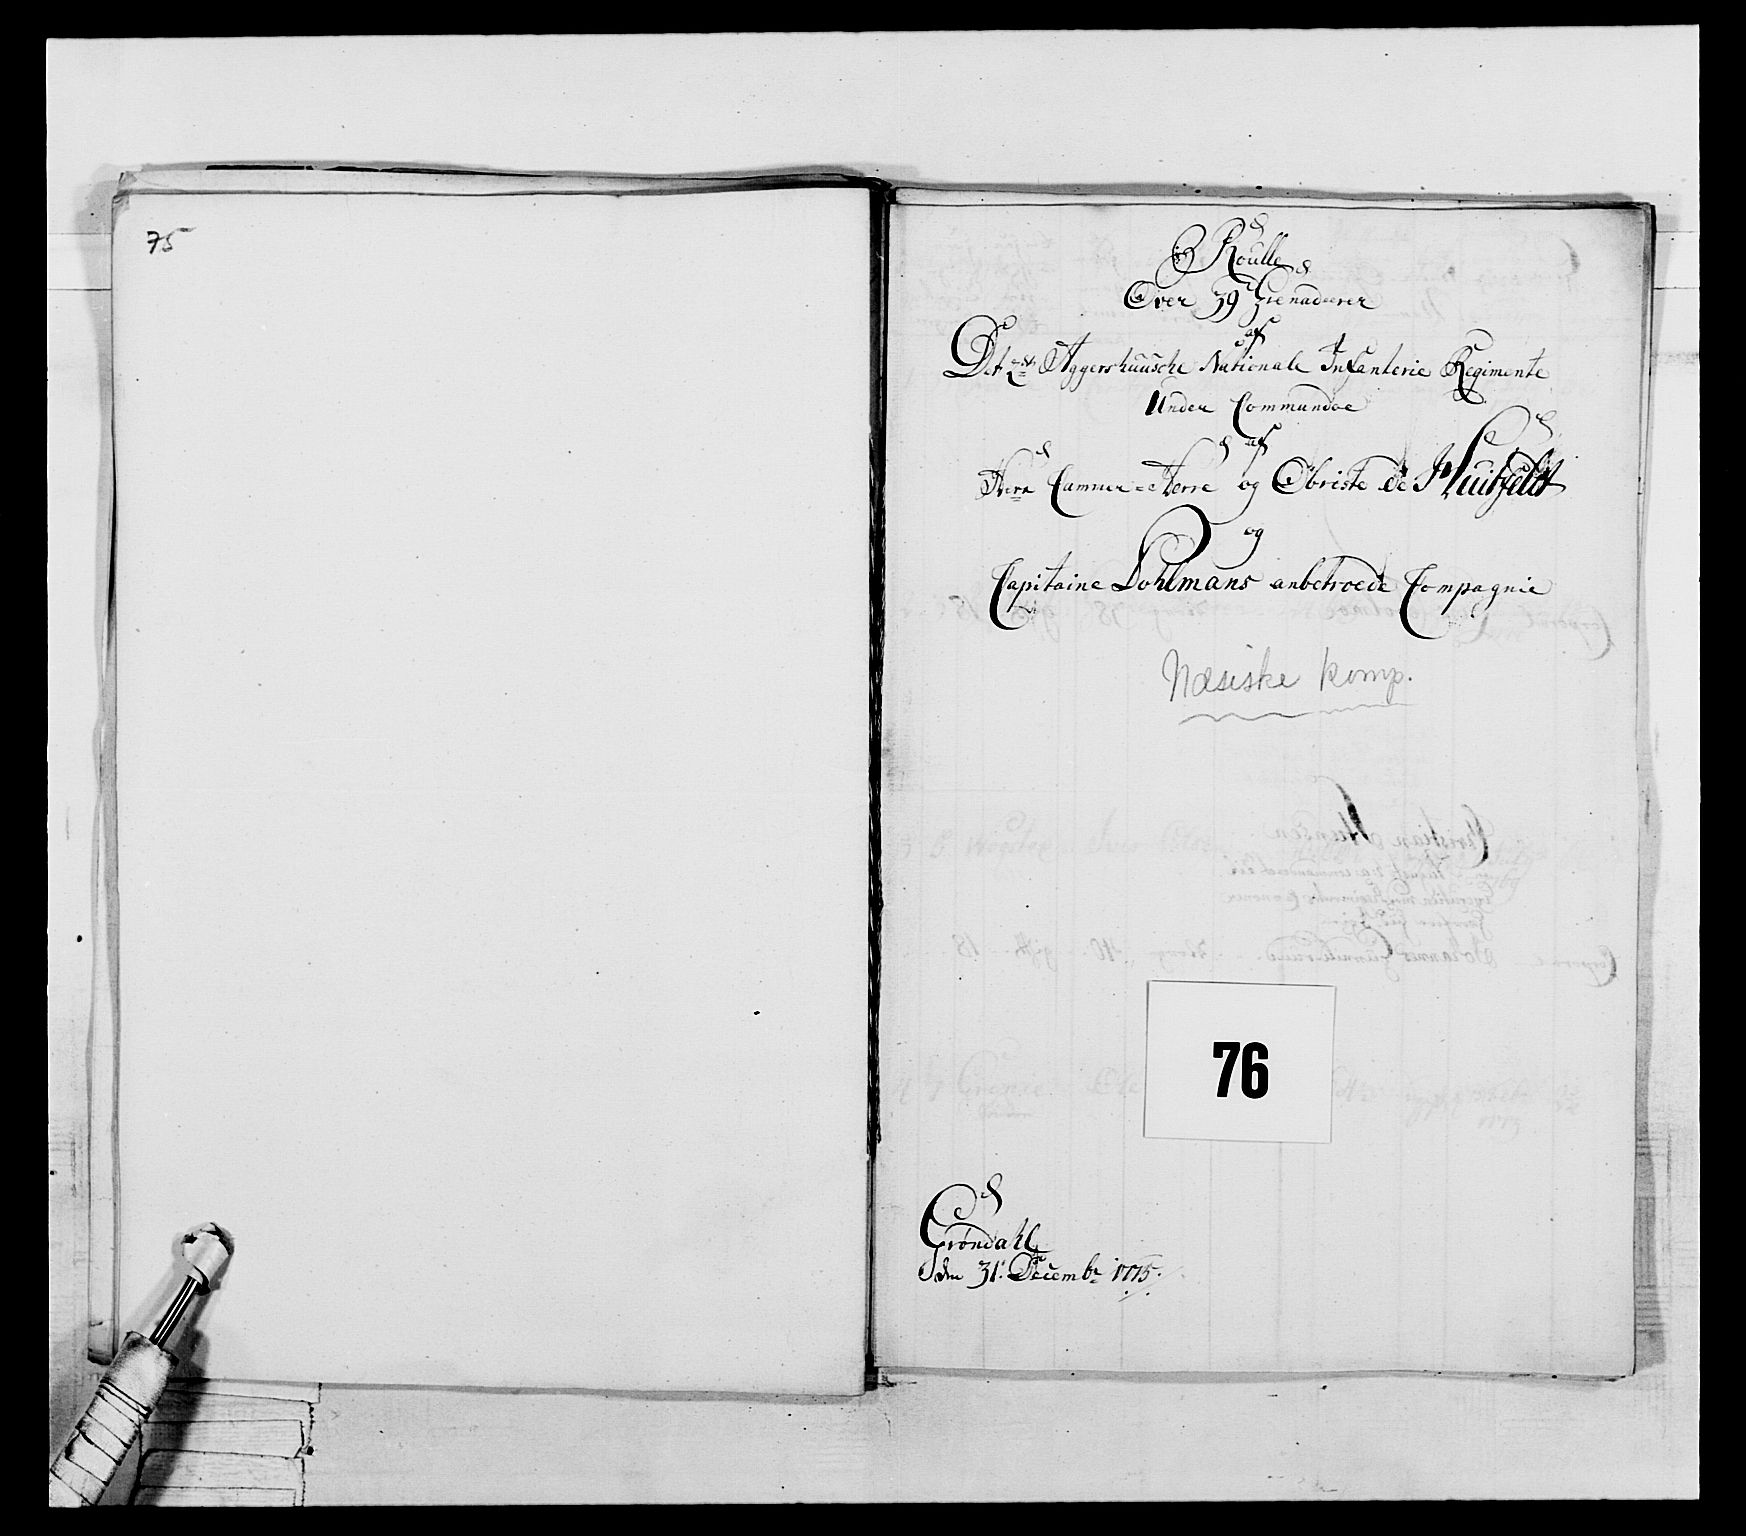 75
Roulle
Over 39 Grenaderer
af
Det 2de Aggershuusche Nationale Infanterie Regimente
Under Commandoe
af
Herr Cammer=Herre og Obriste de Huitfeldt
og
Capitaine Dohlmans anbetroede Compagnie
Næsiske komp.
76
Grøndahl
den 31te Decembr 1775.